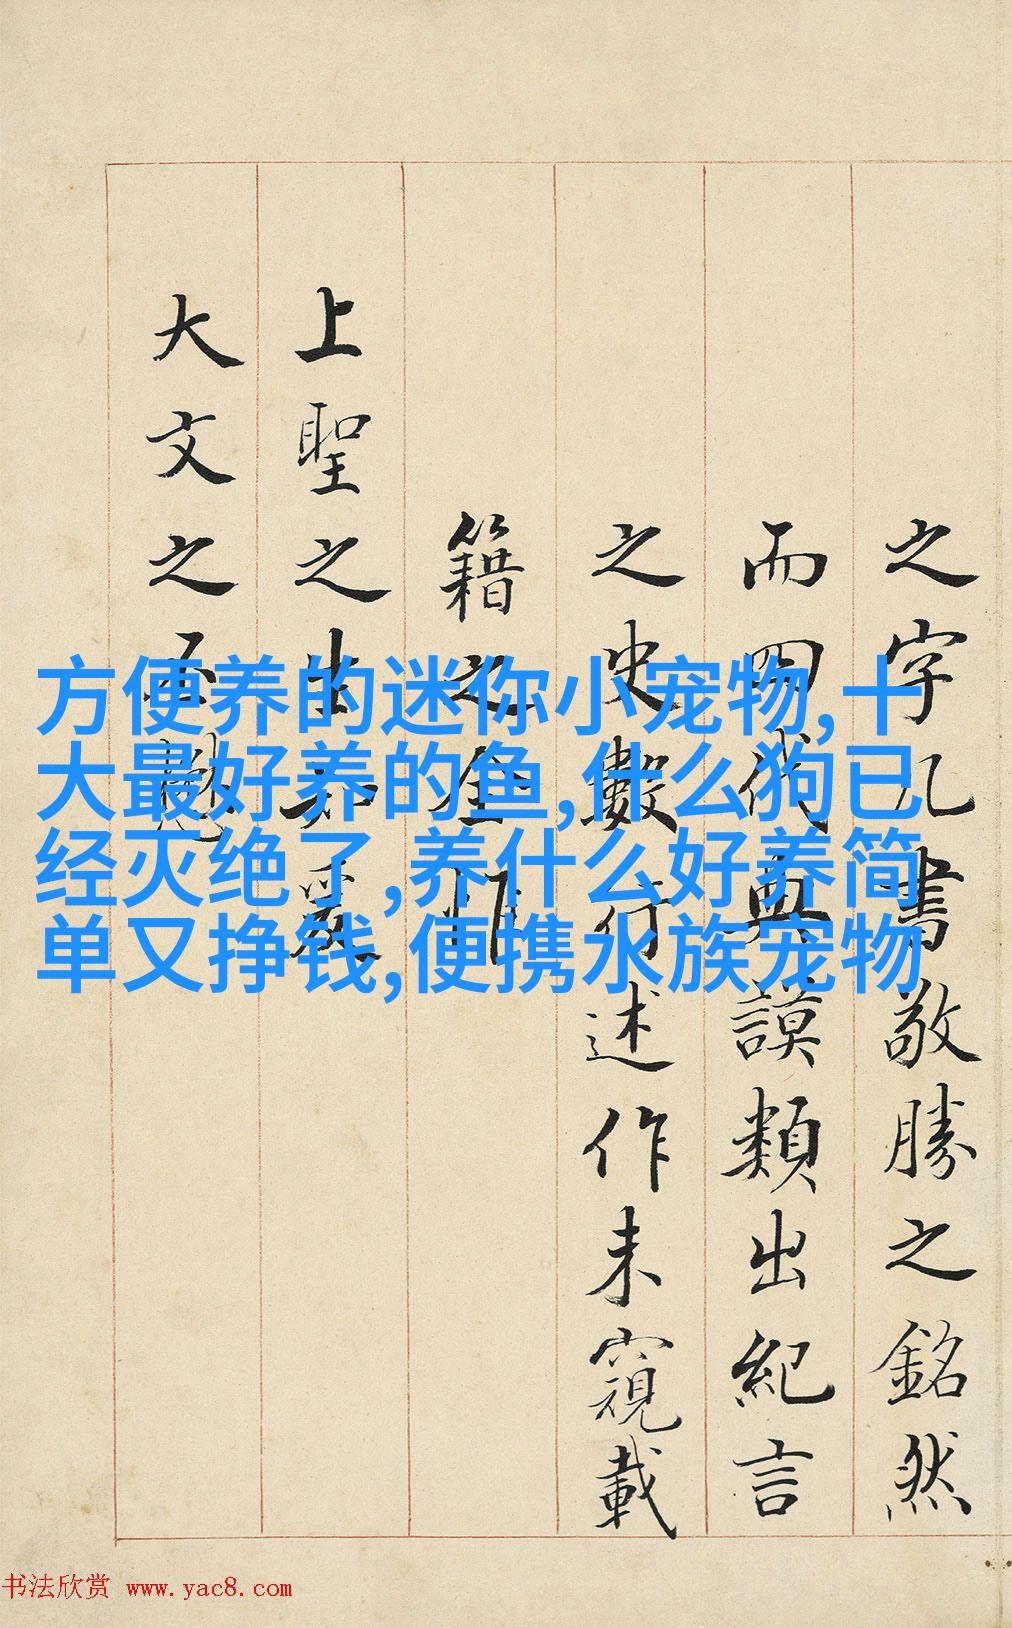 之字几書敬勝之銘然
而四代典謨類出紀言
之史數行述作未窺載
籍之全惟
上聖之生知爰
大文之丕
方便养的迷你小宠物,十
大最好养的鱼,什么狗已
经灭绝了,养什么好养简
单又挣钱,便携水族宠物
书法欣赏 www.yac8.com